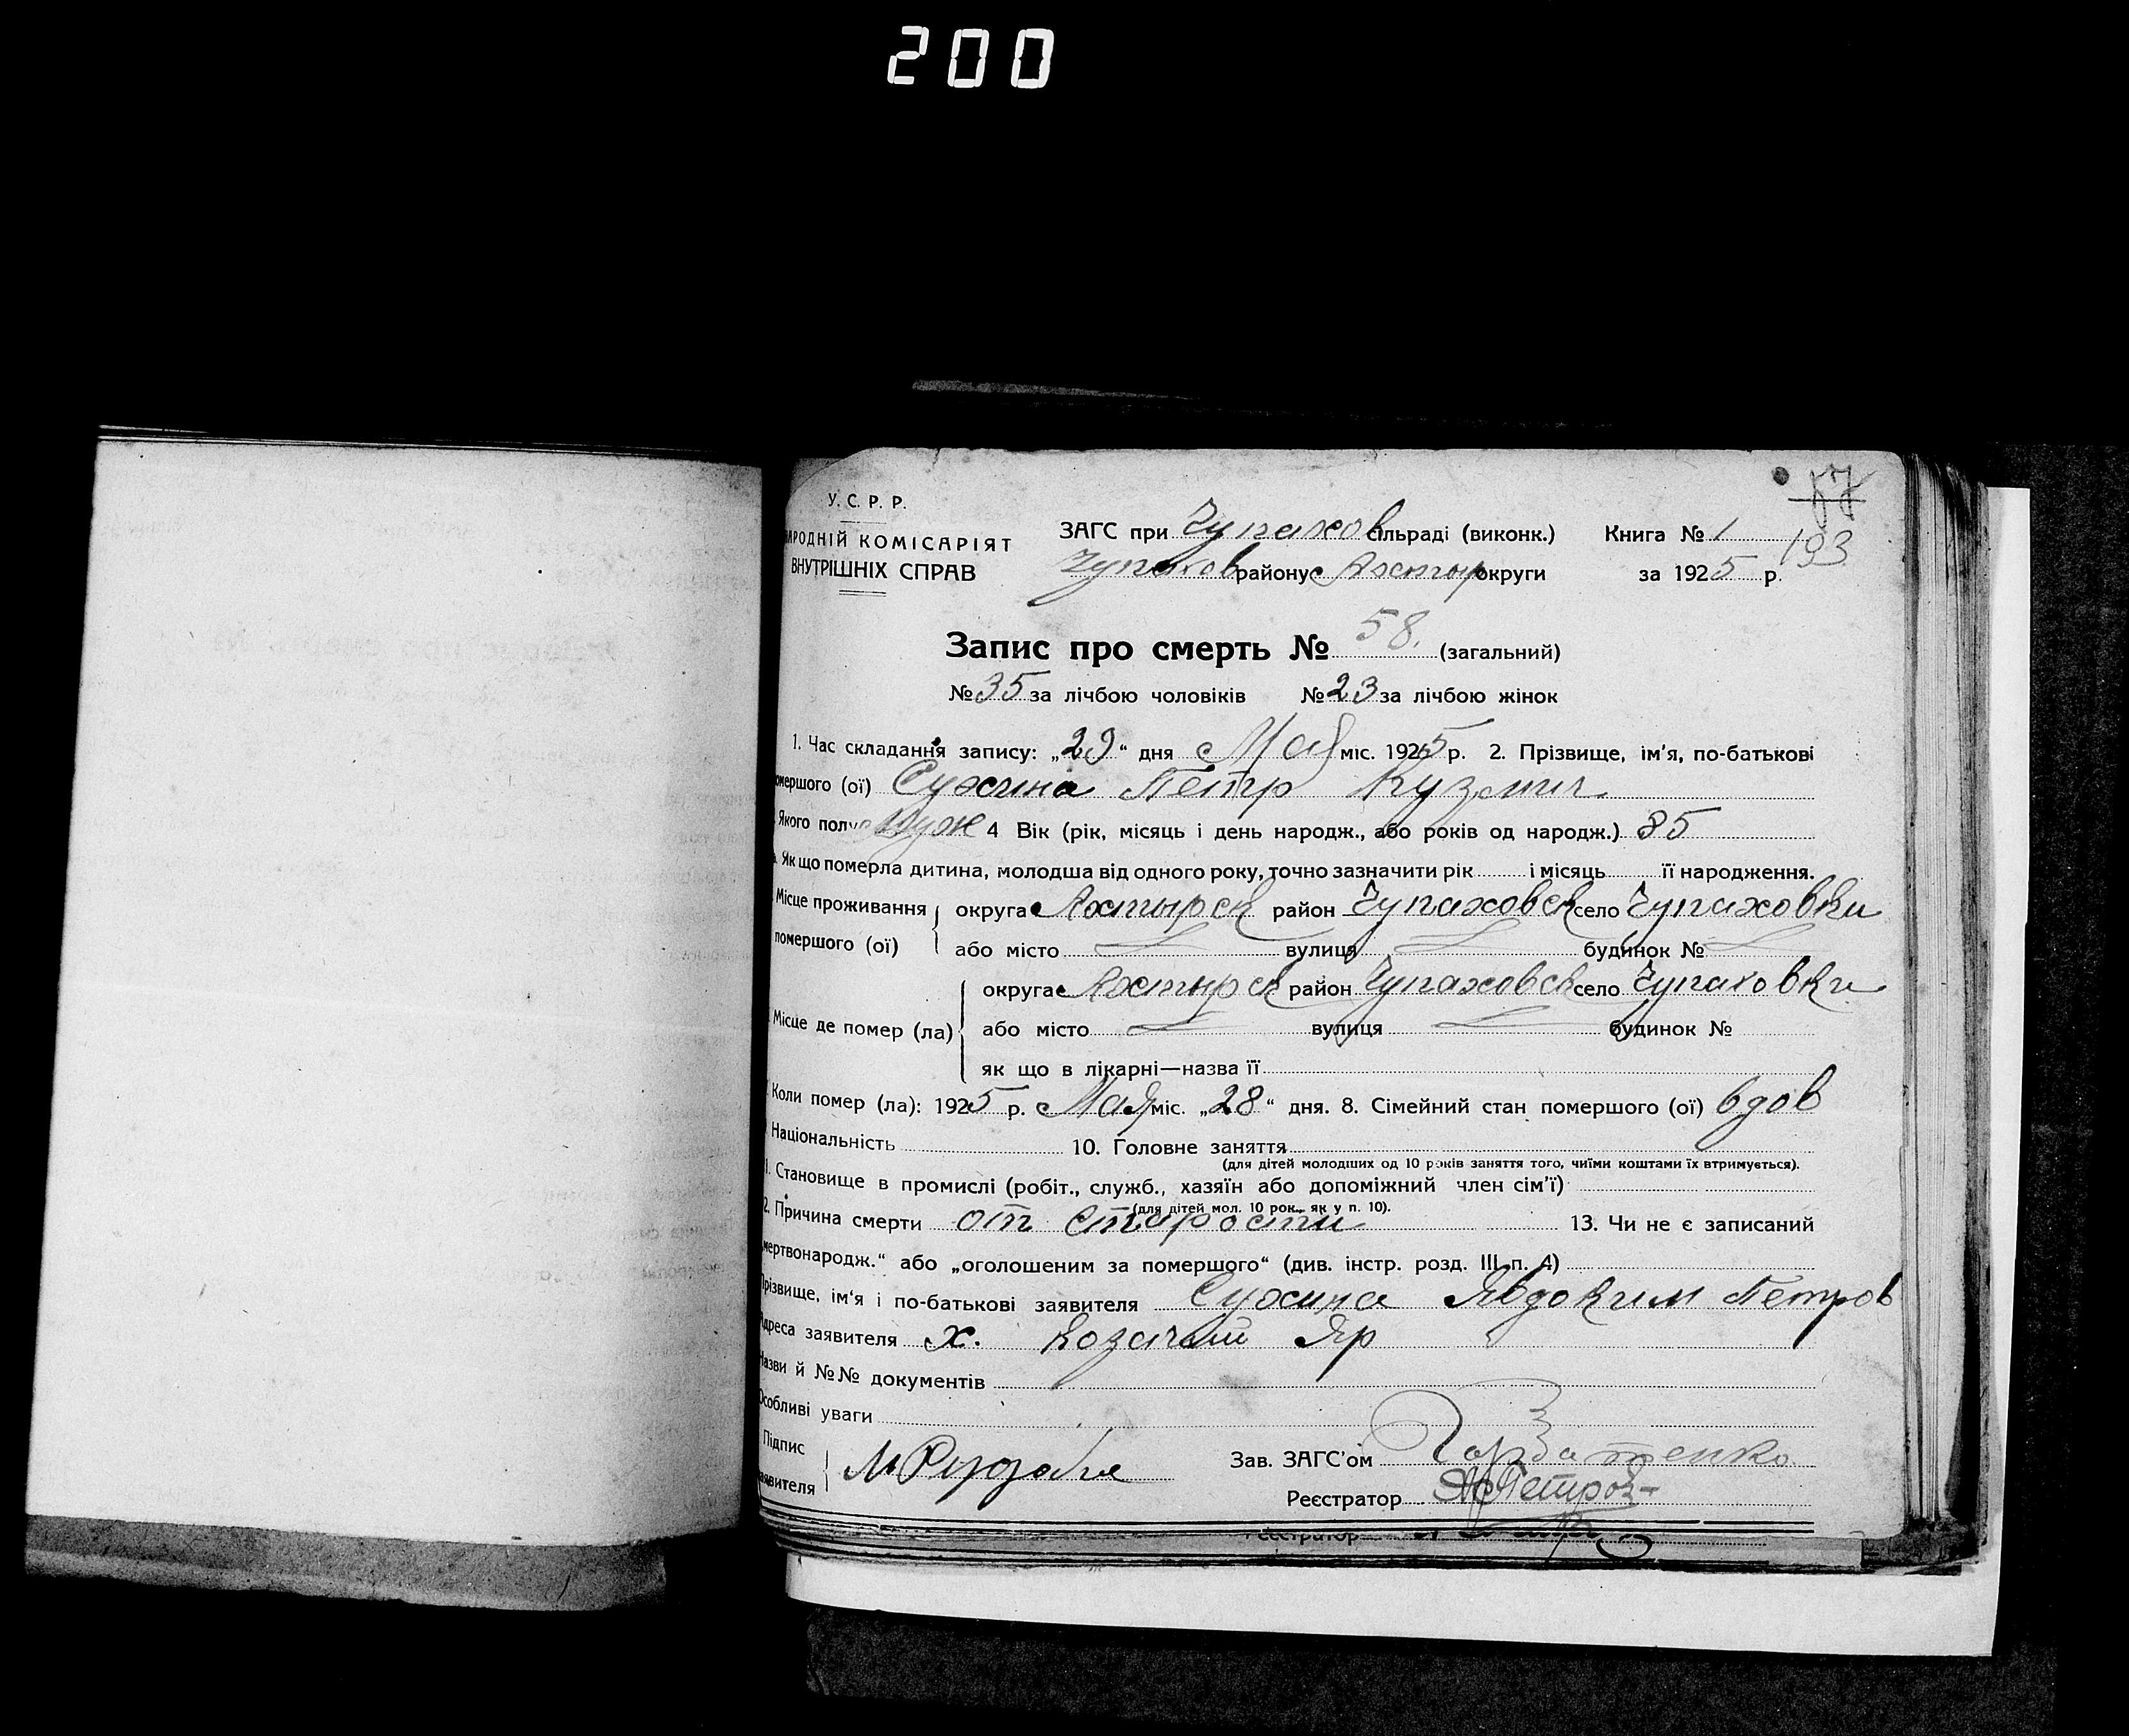 200
У. С. Р. Р.
АРОДНІЙ КОМІСАРІЯТ
ВНУТРІШНІХ СПРАВ
ЗАГС при Чупахов сільраді (виконк.)
Чупахов району Ахтыр округи
Книга № 1
за 1925 р.
193
Запис про смерть № 58. (загальний)
№ 35 за лічбою чоловіків № 23 за лічбою жінок
1. Час складання запису: „29“ дня Мая міс. 1925 р. 2. Прізвище, ім'я, по-батькові
омершого (ої) Сухина Петр Кузмич
Якого полу муж 4 Вік (рік, місяць і день народж., або років од народж.) 85
Як що померла дитина, молодша від одного року, точно зазначити рік і місяць її народження.
Місце проживання помершого (ої) округа Ахтырск район Чупаховск село Чупаховки
або місто вулиця будинок №
Місце де помер (ла) округа Ахтырск район Чупаховск село Чупаховки
або місто вулиця будинок №
як що в лікарні—назва її
Коли помер (ла): 1925 р. Мая міс. „28“ дня. 8. Сімейний стан помершого (ої) вдов
Національність 10. Головне заняття
(для дітей молодших од 10 років заняття того, чиїми коштами їх втримується).
1. Становище в промислі (робіт., служб., хазяїн або допоміжний член сім'ї)
(для дітей мол. 10 рок., як у п. 10).
2. Причина смерти от старости 13. Чи не є записаний
мертвонародж.“ або „оголошеним за помершого“ (див. інстр. розд. III п. 4)
Прізвище, ім'я і по-батькові заявителя Сухина Явдоким Петров
Адреса заявителя х. Козачий Яр
Назви й №№ документів
Особливі уваги
Підпис
заявителя
Зав. ЗАГС'ом
Реєстратор Петров
Реєстратор